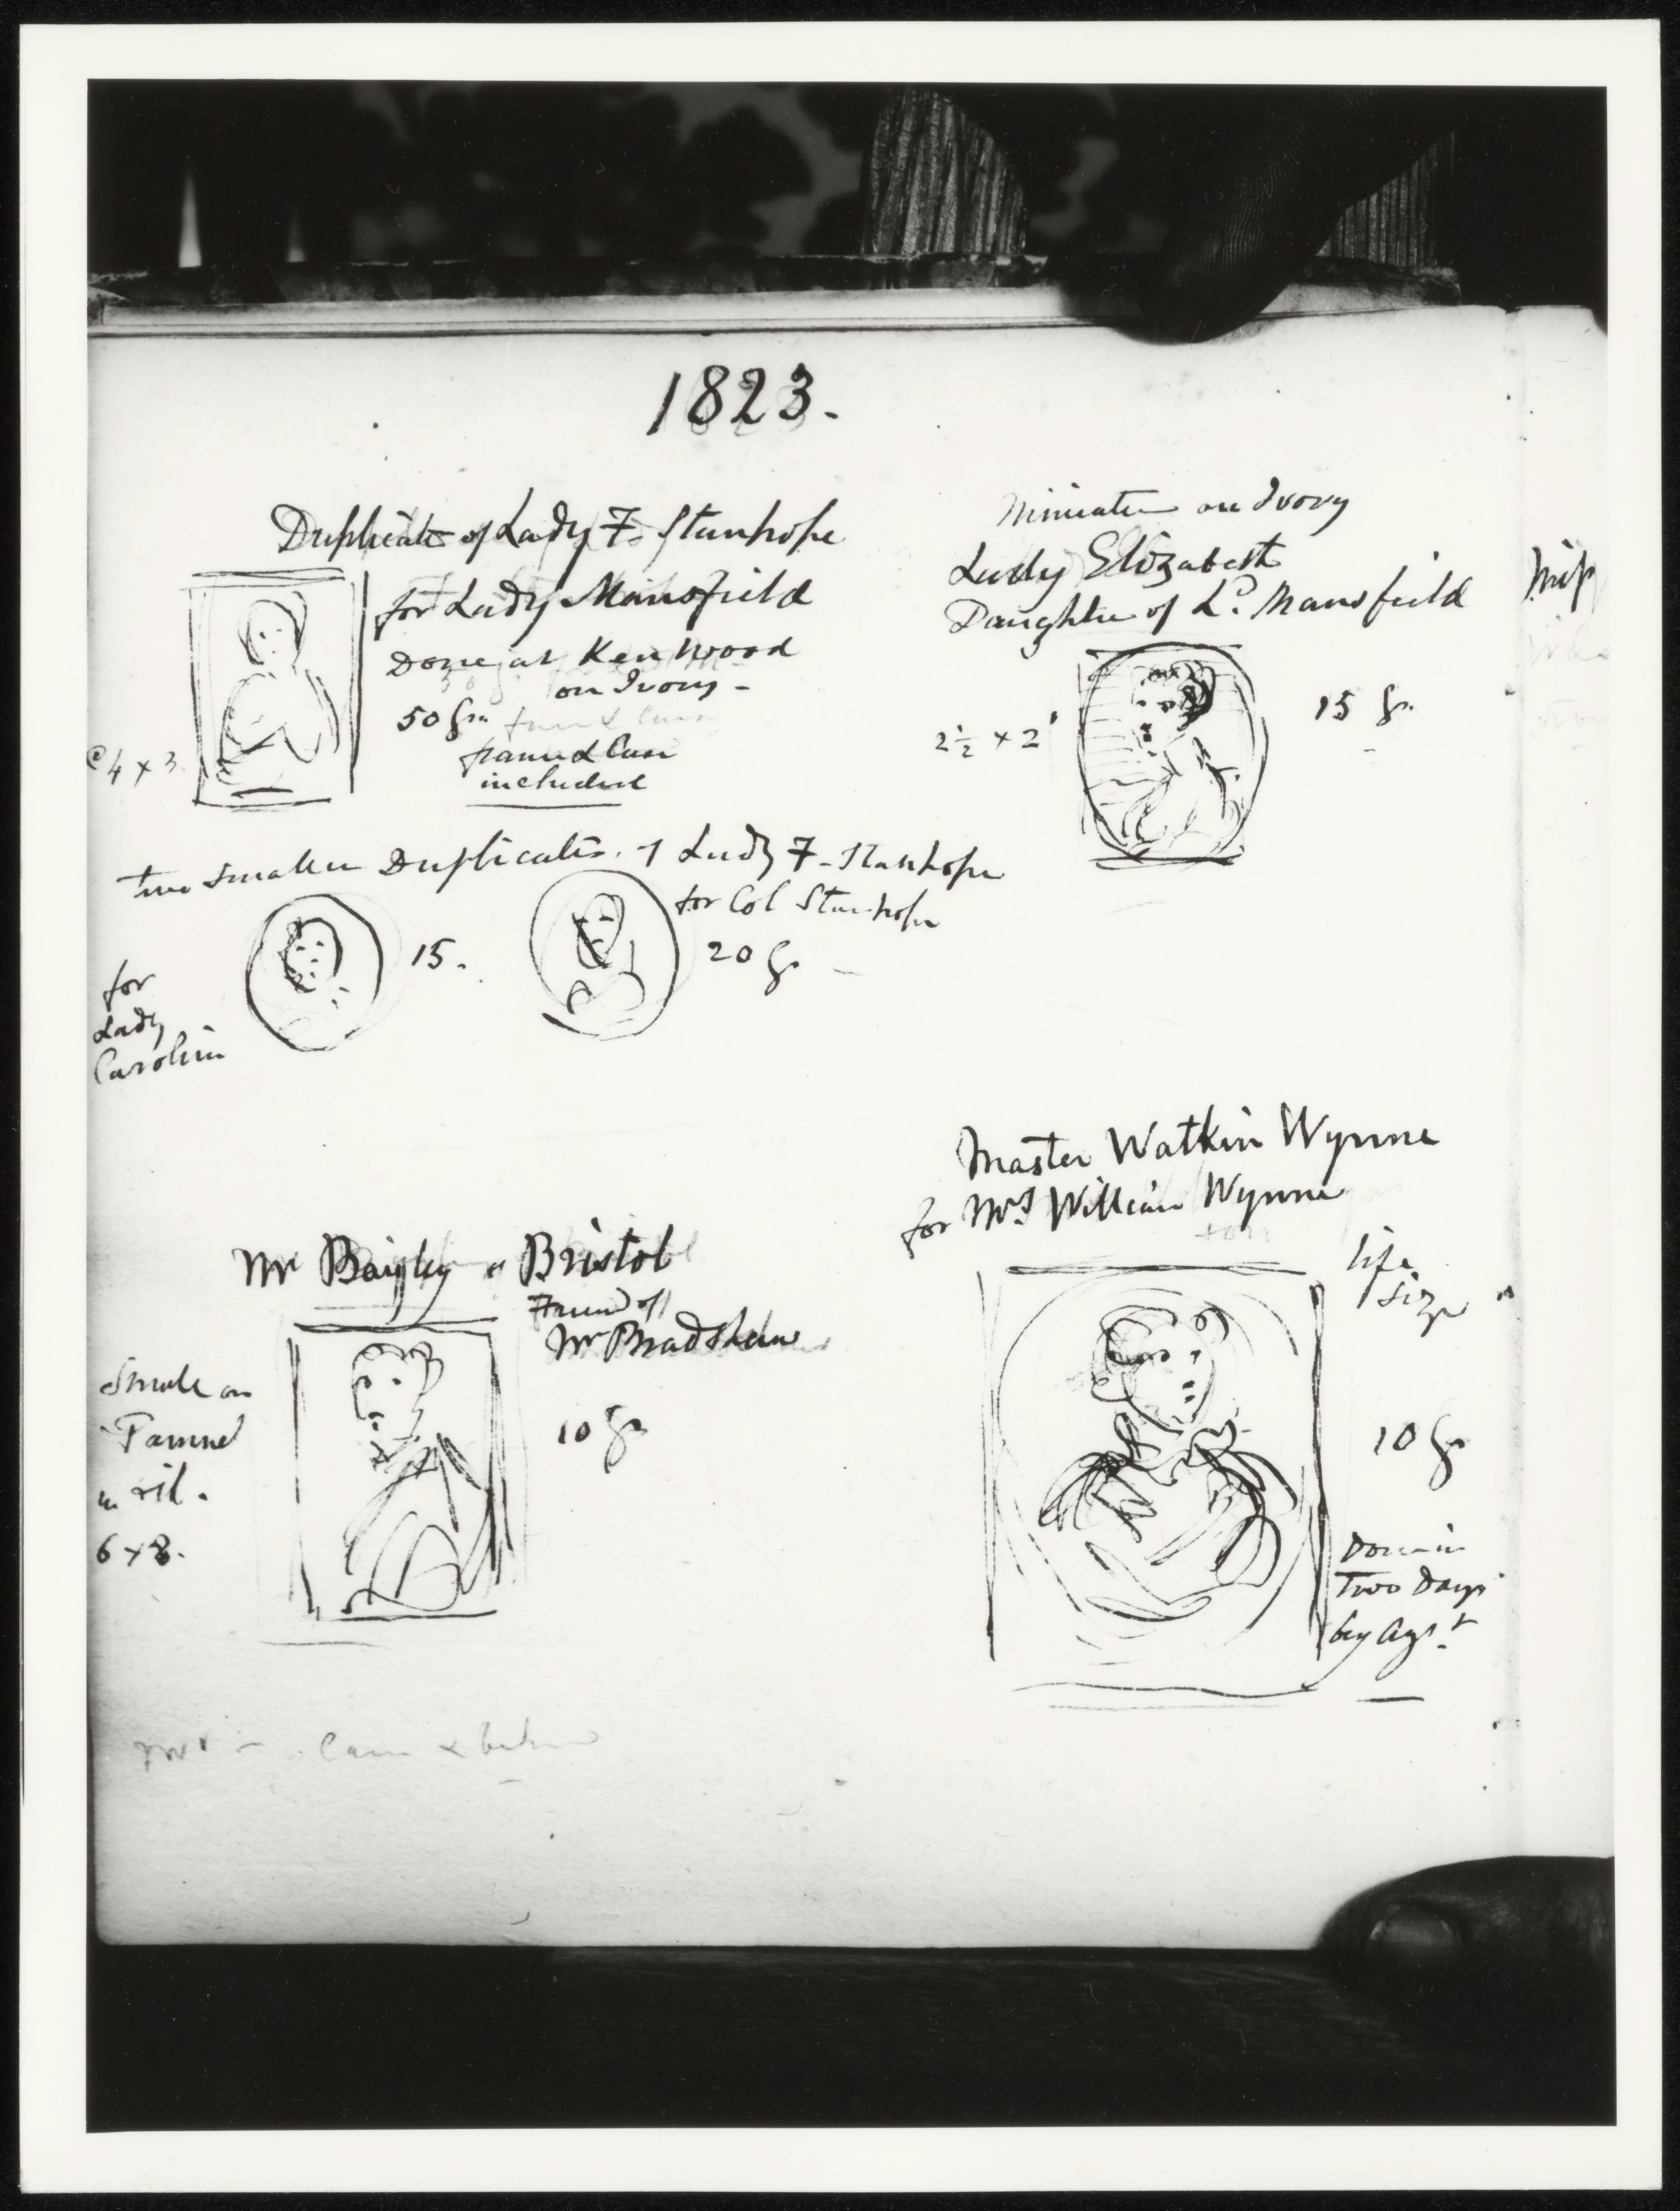 1823.
Duplicate of Lady F. Stanhope
for Lady Mansfield
Done at Ken Wood
on Ivory -
50 gs.
frame & Case
included
4 x 3
Miniature on Ivory
Lady Elizabeth
Daughter of Ld. Mansfield
2½ x 2
15 gs.
two smaller Duplicates of Lady F. Stanhope
for Col Stanhope
for
Lady
Caroline
15.
20 gs
Master Watkin Wynne
for Mrs William Wynne
life
size
10 gs
Done in
Two Days
by
Mr Baigley Bristol
Friend of
Mr Bradshaw
10 gs
Small on
Pannel
in oil.
6 x 8.